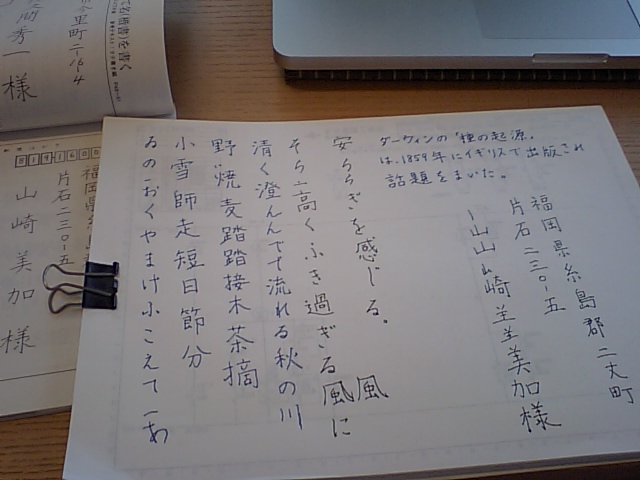 ダーウィンの「種の起源」
は、1859年にイギリスで出版され
話題をまいた。
福岡県糸島郡二丈町
片石二三〇-五
山山崎美美加様
安らぎを感じる。 風
そら高くふき過ぎる風に
清く澄んんでて流れる秋の川
野焼麦踏踏接木茶摘
小雪師走短日節分
るのおくやまけふこえて
様
山崎美加様
片石二三〇-五
福岡県糸